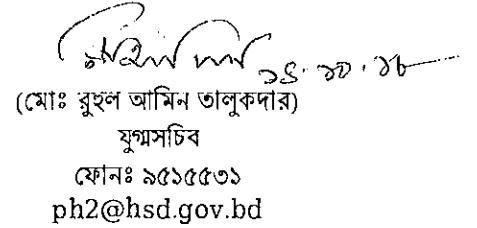 ১৪.১০.১৮
(মোঃ রুহুল আমিন তালুকদার)
যুগ্মসচিব
ফোনঃ ৯৫১৫৫৩১
ph2@hsd.gov.bd